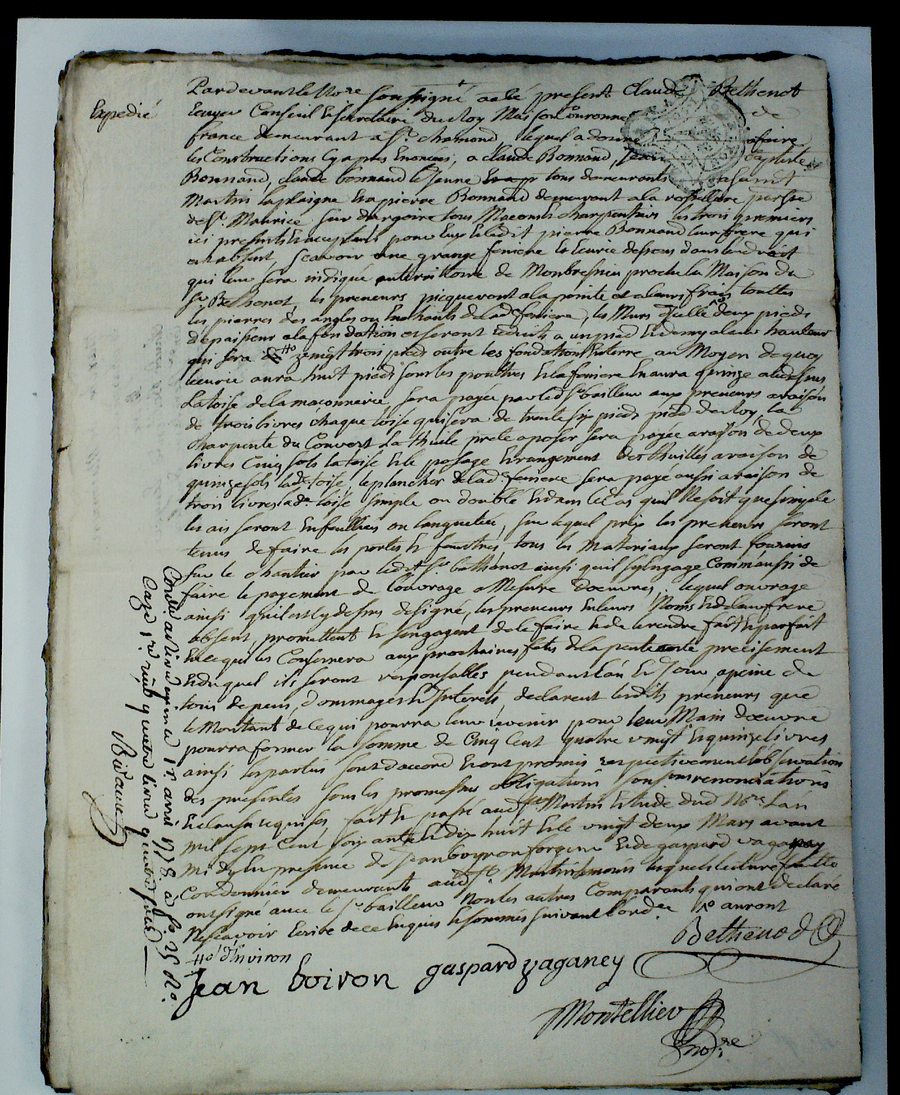 Expedié
Pardevant le No.re soussigné a été présent Claude Bethenot
Ecuyer Conseil.r Secretaire du Roy Maison Couronne de
france demeurant a S.t Chamond lequel a donné a faire
les Constructions Cy apres Enoncées, a Claude Bonnand,
Bonnand, Claude bonnand le Jeune tous demeurants a S.t
Martin laplaigne Et a pierre Bonnand demeurant a la parr.sse
de S.t Maurice sur dargoire tous Maçons Charpentiers les trois premiers
icy presents Et acceptants pour Eux Et ledit pierre Bonnand leur frere qui
est absent, Scavoir une grange feniere Et Ecurie dessous dans l'endroit
qui leur sera indiqué au territoire de Monbressieu proche la Maison du
S.r Bethenot, les preneurs picqueront a la pointe et a leurs frais touttes
les pierres des angles ou tranchants de lad. feniere, les Murs d'icelle deux pieds
d'epaisseur a la fondation et seront reduits a un pied Et demy a leur hauteur
qui sera vingt trois pieds outre les fondations En terre au Moyen de quoy
l'ecurie aura huit pieds sous les pouttres Et la feniere En aura quinze au dessus
La toise de la maçonnerie sera payée par led. S.r bailleur aux preneurs a raison
de trois livres chaque toise qui sera de trente six pieds pied de Roy, la
Charpente du Couvert La thuile preste a poser sera payée a raison de deux
livres Cinq sols la toise Et le posage Et rangement des thuilles a raison de
quinze sols lad. toise, le plancher de lad. feniere sera payé aussi a raison de
trois livres la d. toise simple ou double Et dans le cas qu'il Ne soit que simple
les ais seront Enfeuillés ou languetés, sur lequel prix les preneurs seront
tenus de faire les portes Et fenestres, tous les Materiaux seront fournis
sur le chantier par ledit S.r bethenot ainsi qu'il s'engage Comm'aussi de
faire le payement de l'ouvrage a Mesure d'oeuvre, lequel ouvrage
ainsi qu'il est cy dessus designé, les preneurs En leurs Noms Et de leur frere
absent, promettent Et s'engagent de le faire Et de le rendre fait Et parfait
En ce qui les Consernera aux prochaines fetes de la pentecote precisement
Et duquel ils seront responsables pendant l'an Et Jour a peine de
tous depens, dommages Et Interets, declarent lesdits preneurs que
le Montant de ce qui pourra leur revenir pour leur Main d'oeuvre
pourra former la somme de Cinq Cent quatre vingt Et quinze livres
ainsi les parties sont d'accord Et ont promis respectivement l'observation
des presentes sous les promesses obligations soumissions renonciations
Et clauses requises fait Et passé aud. S.t Martin Etude dud. No.re L'an
Mil sept Cent soixante Et dix huit Et le vingt deux Mars avant
Midy En presence de Jean boyron forgeur Et de gaspard vaganey
Cordonnier demeurants aud. S.t Martin temoins lesquels lecture faitte
ont signé avec le S.r bailleur Non les autres Comparants qui ont declaré
Ne scavoir Ecrire de ce Enquis Et sommés suivant l'ord.ce
d'environ
Bethenod
Jean boiron gaspard vaganey
Montellier
no.re